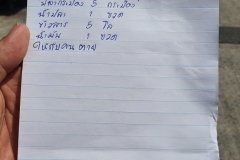 ปลากระป๋อง 5 กระป๋อง
น้ำปลา 1 ขวด
ข้าวสาร 5 โล
น้ำมัน 1 ขวด
ให้กับคนตาย